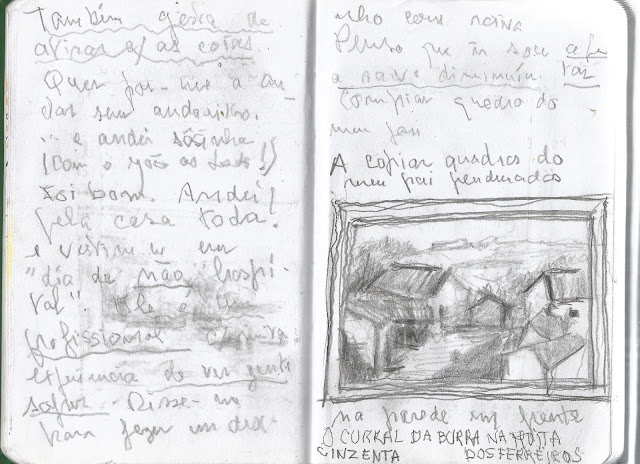 Também gosta de
atirar c/ as coisas.
Quer pôr-me a an-
dar sem andarilho.
... e andei sòzinha
(com o João ao lado!)
Foi bom. Andei
pela casa toda!
e vestiu-me em
"dia de não hospi-
tal". Ele é um
profissional c/ muita
experiência de ver gente
sofrer. Disse-me
para fazer um dese-
nho com raiva
Penso que ao sou
a raiva diminuiu.
Copiar quadro do
meu pai
A copiar quadros do
meu pai pendurados
na parede em frente
O CURRAL DA BURRA NA
CINZENTA DOS FERREIROS